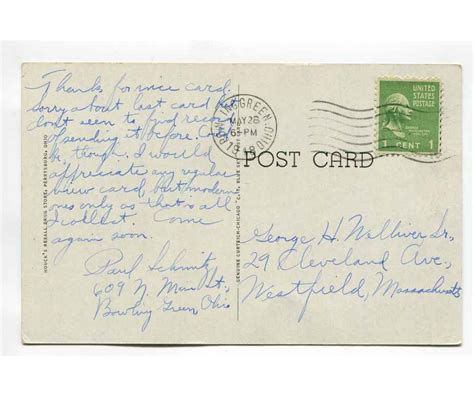 Thanks for nice card.
sorry about last card
don't seem to find record
of sending it before.
though, I would
appreciate any regular
view card, but modern
ones only as that is all
I collect. Come
again soon.
Paul Schmitz
609 N. Main St.,
Bowling Green, Ohio
HOUCK'S REXALL DRUG STORE, PERRYSBURG, OHIO
GENUINE CURTEICH-CHICAGO
BOWLING GREEN, OHIO
MAY 28
6 30 PM
1948
UNITED
STATES
POSTAGE
1 CENT 1
POST CARD
George H. Walliver Jr.
29 Cleveland Ave.,
Westfield, Massachusetts